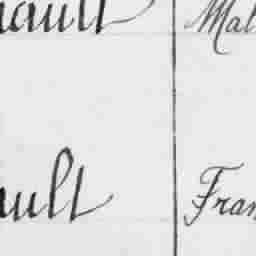 ault Mal
ult Fran